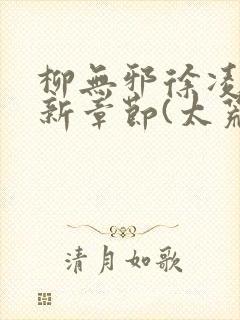 柳無邪徐凌
新章節(太荒
清月如歌